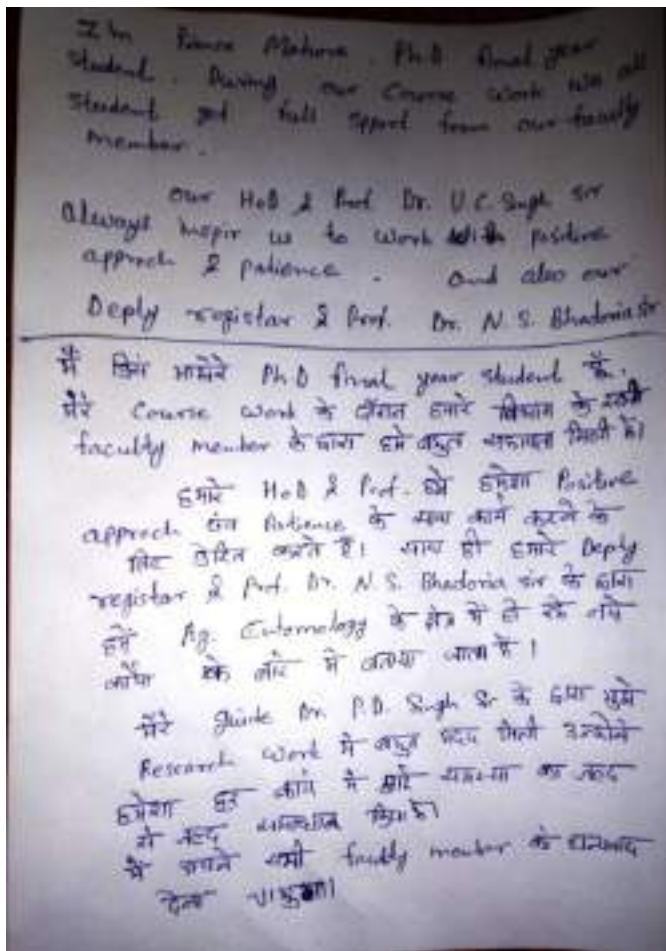 I'm Prince Mahore. Ph.D final year
student. During our Course work we all
student get full spport from our faculty
member.
our HoD & Prof. Dr. U.C. Singh sir
always inspir us to work with positive
approch & patience. And also our
Deply registar & Prof. Dr. N.S. Bhadoria sir
मैं Ph.D final year student हूँ.
मेरे Course work के दौरान हमारे विभाग के सभी
faculty member के द्वारा हमे बहुत सहायता मिली है।
हमारे HoD & Prof. हमे हमेशा Positive
approch एवं Patience के साथ कार्य करने के
लिए प्रेरित करते हैं। साथ ही हमारे Deply
registar & Prof. Dr. N.S. Bhadoria sir के द्वारा
हमें Ag. Entomology के क्षेत्र में हो रहे नये
कार्यों के बारे में बताया जाता है।
मेरे guide Dr. P.D. Singh Sir के द्वारा मुझे
Research work में बहुत मदद मिली उन्होंने
हमेशा हर कार्य में समस्या का जल्द
से जल्द समाधान किया है।
मैं अपने सभी faculty member को धन्यवाद
देना चाहूंगा।